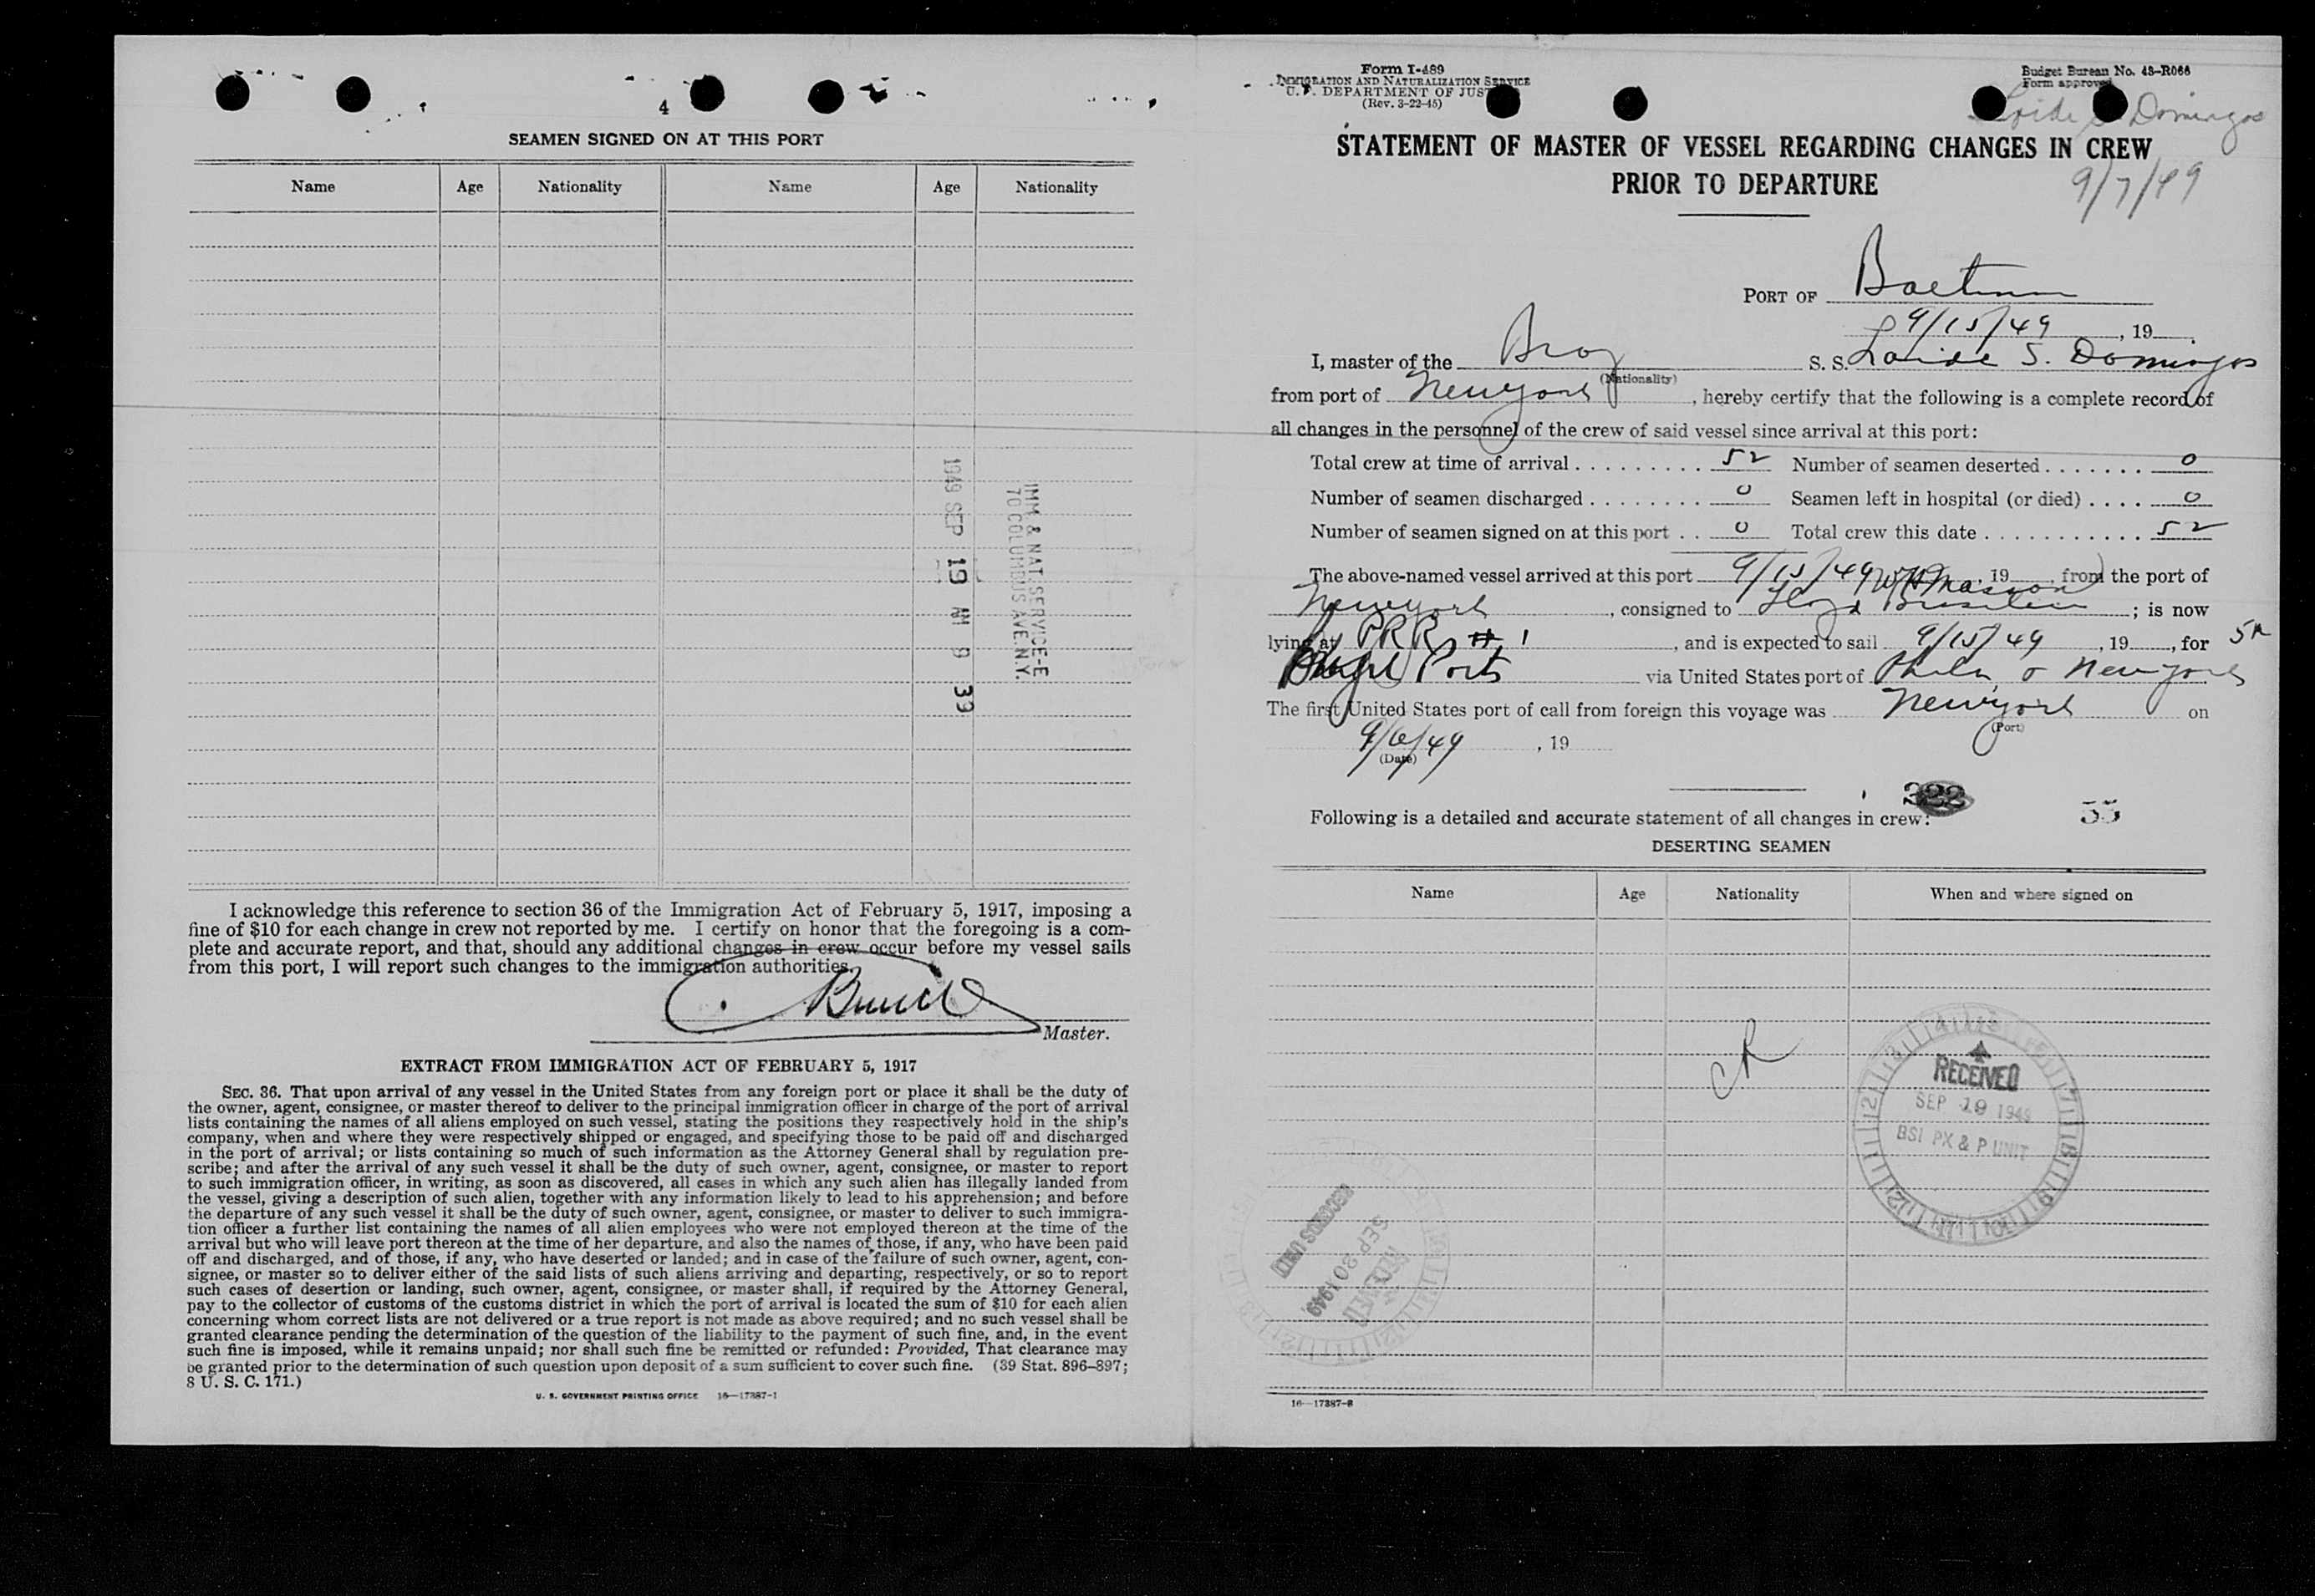 4
SEAMEN SIGNED ON AT THIS PORT
Name Age Nationality Name Age Nationality
1949 SEP 19 AM 9 39
IMM & NAT. SERVICE-E
70 COLUMBUS AVE. N.Y.
I acknowledge this reference to section 36 of the Immigration Act of February 5, 1917, imposing a
fine of $10 for each change in crew not reported by me. I certify on honor that the foregoing is a com-
plete and accurate report, and that, should any additional changes in crew occur before my vessel sails
from this port, I will report such changes to the immigration authorities.
Master.
EXTRACT FROM IMMIGRATION ACT OF FEBRUARY 5, 1917
SEC. 36. That upon arrival of any vessel in the United States from any foreign port or place it shall be the duty of
the owner, agent, consignee, or master thereof to deliver to the principal immigration officer in charge of the port of arrival
lists containing the names of all aliens employed on such vessel, stating the positions they respectively hold in the ship's
company, when and where they were respectively shipped or engaged, and specifying those to be paid off and discharged
in the port of arrival; or lists containing so much of such information as the Attorney General shall by regulation pre-
scribe; and after the arrival of any such vessel it shall be the duty of such owner, agent, consignee, or master to report
to such immigration officer, in writing, as soon as discovered, all cases in which any such alien has illegally landed from
the vessel, giving a description of such alien, together with any information likely to lead to his apprehension; and before
the departure of any such vessel it shall be the duty of such owner, agent, consignee, or master to deliver to such immigra-
tion officer a further list containing the names of all alien employees who were not employed thereon at the time of the
arrival but who will leave port thereon at the time of her departure, and also the names of those, if any, who have been paid
off and discharged, and of those, if any, who have deserted or landed; and in case of the failure of such owner, agent, con-
signee, or master so to deliver either of the said lists of such aliens arriving and departing, respectively, or so to report
such cases of desertion or landing, such owner, agent, consignee, or master shall, if required by the Attorney General,
pay to the collector of customs of the customs district in which the port of arrival is located the sum of $10 for each alien
concerning whom correct lists are not delivered or a true report is not made as above required; and no such vessel shall be
granted clearance pending the determination of the question of the liability to the payment of such fine, and, in the event
such fine is imposed, while it remains unpaid; nor shall such fine be remitted or refunded: Provided, That clearance may
be granted prior to the determination of such question upon deposit of a sum sufficient to cover such fine. (39 Stat. 896–897;
8 U. S. C. 171.)
U. S. GOVERNMENT PRINTING OFFICE 16—17387-1
Form I-489
IMMIGRATION AND NATURALIZATION SERVICE
U. S. DEPARTMENT OF JUST
(Rev. 3-22-45)
Budget Bureau No. 43-R066
Form approved
Loide S Domingos
STATEMENT OF MASTER OF VESSEL REGARDING CHANGES IN CREW
PRIOR TO DEPARTURE
9/7/49
PORT OF
9/15/49, 19
I, master of the Braz S. S. Loide S. Domingos
(Nationality)
from port of New York, hereby certify that the following is a complete record of
all changes in the personnel of the crew of said vessel since arrival at this port:
Total crew at time of arrival 52 Number of seamen deserted 0
Number of seamen discharged 0 Seamen left in hospital (or died) 0
Number of seamen signed on at this port 0 Total crew this date 52
The above-named vessel arrived at this port 9/15/49, 19 from the port of
New York, consigned to Lloyd ; is now
lying at PRR # 1, and is expected to sail 9/15/49, 19, for
Ports via United States port of Phila, New York
The first United States port of call from foreign this voyage was New York on
(Port)
9/6/49, 19
(Date)
322
55
Following is a detailed and accurate statement of all changes in crew:
DESERTING SEAMEN
Name Age Nationality When and where signed on
CR
RECEIVED
SEP 19 1949
BSI PX & P UNIT
RECORDS UNIT
SEP 20 1949
RECEIVED
16—17387-2